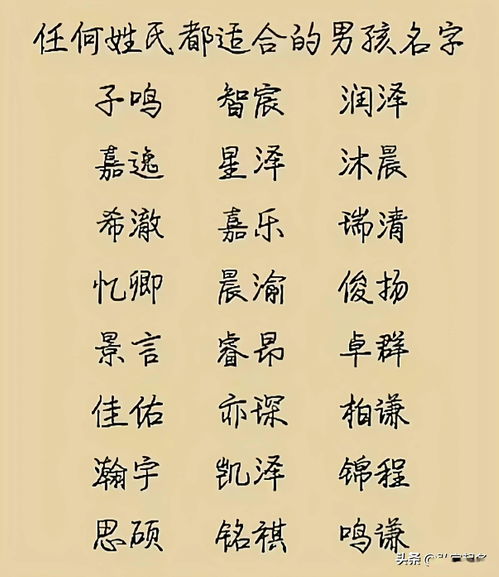 任何姓氏都适合的男孩名字
子鸣 智宸 润泽
嘉逸 星泽 沐晨
希澈 嘉乐 瑞清
忆卿 晨渝 俊扬
景言 睿昂 卓群
佳佑 亦琛 柏谦
瀚宇 凯泽 锦程
思硕 铭祺 鸣谦
头条